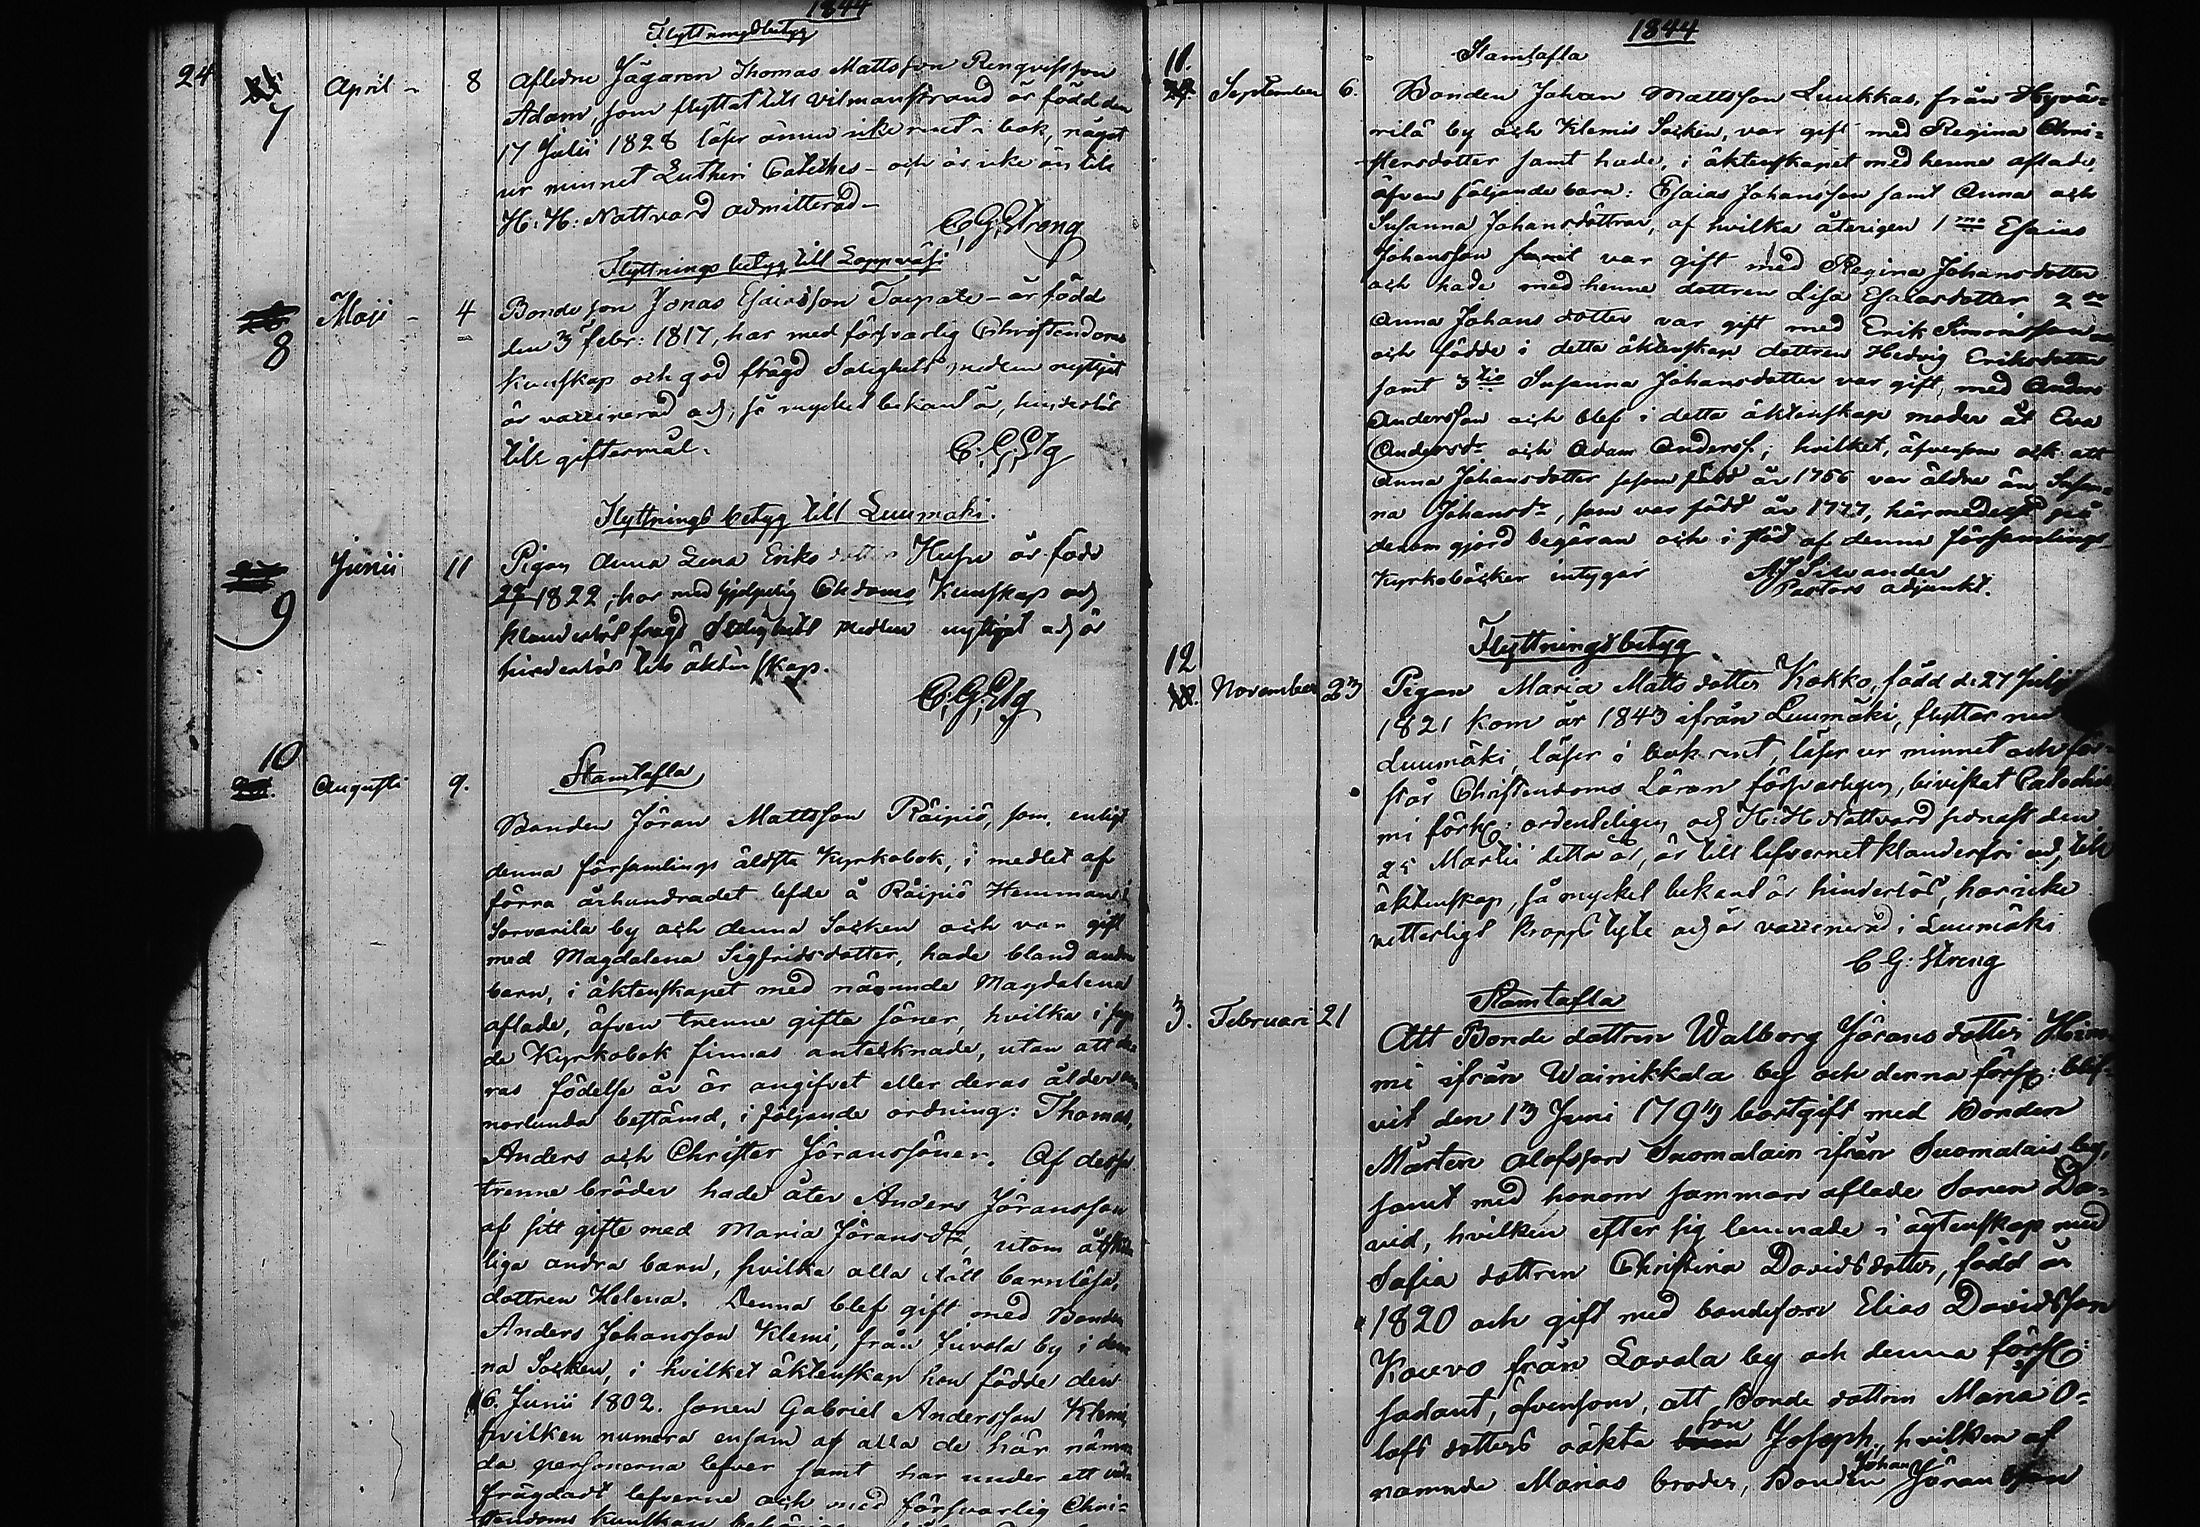 1844
Flyttningsbetyg
24 7 April 8 Aflidne Jägaren Thomas Mattsson Renqvists son
Adam, som flyttat till Vilmanstrand är född den
17 Julii 1828 läser ännu icke rent i bok, något
ur minnet Lutheri Cateches och är icke än till
H. H. Nattvard admitterad
C. G. Streng
Flyttnings betyg till Lappvesi
8 Maji 4 Bondeson Jonas Esaiasson Taipale är född
den 3 febr: 1817, har med försvarlig Christendoms
kunskap och god frägd Salighets medlen nyttjat
är vaccinerad och, så mycket bekant är, hinderlös
till giftermål.
C. G. Stg
Flyttnings betyg till Luumäki.
9 Junii 11 Pigan Anna Lena Eriks dotter Husu är född
1822, har med hjelpelig Chdoms Kunskap och
klanderlös frägd Salighets medlen nyttjat och är
hinderlös till äktenskap.
C. G. Stg
10 Augusti 9. Stamtafla
Bonden Jöran Mattsson Räipiö, som, enligt
denna församlings äldsta Kyrkobok, i medlet af
förra århundradet lefde å Räipiö Hemman i
Sorvarila by och denna Socken och var gift
med Magdalena Sigfridsdotter, hade bland andra
barn, i äktenskapet med nämnde Magdalena
aflade, äfven trenne gifta söner, hvilka i
de Kyrkobok finnas antecknade, utan att de-
ras födelse år är angifvet eller deras ålder an-
norlunda bestämd, i följande ordning: Thomas,
Anders och Christer Jöranssöner. Af desse
trenne bröder hade åter Anders Jöransson
af sitt gifte med Maria Jöransdr, utom åtskil-
liga andra barn, hvilka alla dött barnlösa,
dottren Helena. Denna blef gift med Bonden
Anders Johansson Klemi, från Juvola by i den-
na Socken, i hvilket äktenskap hon födde den
6. Junii 1802. sonen Gabriel Andersson Klemi,
hvilken numera ensam af alla de här nämn-
da personerna lefver samt har under ett
frägdadt lefverne och med försvarlig Chri-
stendoms kunskap
1844
Stamtafla
11. September 6. Bonden Johan Mattsson Luukkas från Hyvä-
rilä by och Klemis Socken, var gift med Regina Chri-
stersdotter samt hade, i äktenskapet med henne aflade,
äfven följande barn: Esaias Johansson samt Anna och
Susanna Johansdöttrar, af hvilka återigen 1mo Esaias
Johansson var gift med Regina Johansdotter
och hade med henne dottren Lisa Esaiasdotter 2do
Anna Johans dotter var gift med Erik Simonsson
och födde i detta äktenskap dottren Hedvig Eriksdotter
samt 3tio Susanna Johansdotter var gift med Anders
Andersson och blef i detta äktenskap moder åt Eva
Andersdr och Adam Anderss; hvilket, äfvensom ock att
Anna Johansdotter såsom född år 1756 var äldre än Susan-
na Johansdr, som var född år 1777, härmedelst på
derom gjord begäran och i stöd af denna församlings
Kyrkoböcker intygar
Pastors adjunkt.
Flyttningsbetyg
12 November 23 Pigan Maria Matts dotter Kokko, född d: 27 Julii
1821 kom år 1843 ifrån Luumäki, flyttar nu
Luumäki, läser i bok rent, läser ur minnet och för-
står Christendoms Läran försvarligen, bivistat Catechis-
mi förhr: ordenteligen och H: H Nattvard senast den
25 Martii detta år, är till lefvernet klanderfri och till
äktenskap, så mycket bekant är hinderlös, har icke
vetterligt kropps lyte och är vaccinerad i Luumäki
C G: Streng
Stamtafla
3. Februari 21 Att Bonde dottren Walborg Jörans dotter
mi ifrån Wainikkala by och denna förs: blif-
vit den 13 Juni 1793 bortgift med Bonden
Mårten Olofsson Suomalain ifrån Suomalais by,
samt med honom sammanaflade Sonen Da-
vid, hvilken efter sig lemnade i ägtenskap med
Safia dottren Christina Davidsdotter, född år
1820 och gift med bondeson Elias Davidsson
Kouvo från Lavola by och denna förs:
sådant, äfvensom, att Bonde dottren Maria O-
lofs dotters oäkta son Joseph, hvilken af
nämnde Marias broder, Bonden Johan Jöransson